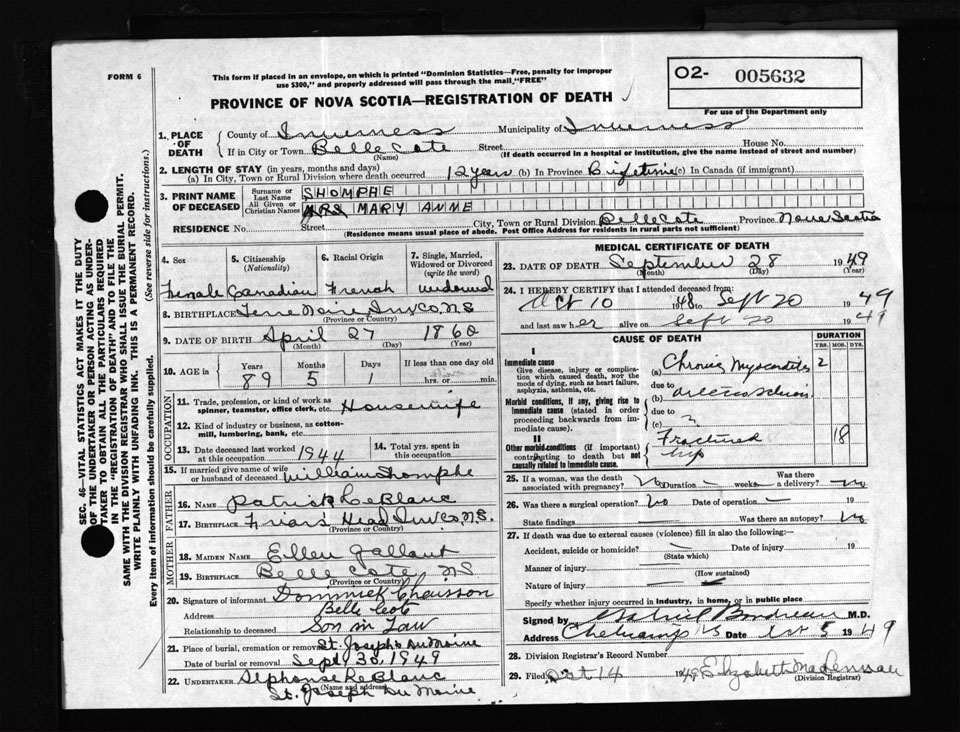 FORM 6
This form if placed in an envelope, on which is printed "Dominion Statistics—Free, penalty for improper
use $300," and properly addressed will pass through the mail, "FREE"
O2- 005632
For use of the Department only
PROVINCE OF NOVA SCOTIA—REGISTRATION OF DEATH
SEC. 46—VITAL STATISTICS ACT MAKES IT THE DUTY
OF THE UNDERTAKER OR PERSON ACTING AS UNDER-
TAKER TO OBTAIN ALL THE PARTICULARS REQUIRED
IN THE "REGISTRATION OF DEATH" AND TO FILE THE
SAME WITH THE DIVISION REGISTRAR WHO SHALL ISSUE THE BURIAL PERMIT.
WRITE PLAINLY WITH UNFADING INK. THIS IS A PERMANENT RECORD.
Every item of information should be carefully supplied. (See reverse side for instructions.)
1. PLACE OF DEATH County of Inverness Municipality of Inverness
If in City or Town Belle Cote Street House No.
(Name) (If death occurred in a hospital or institution, give the name instead of street and number)
2. LENGTH OF STAY (in years, months and days)
(a) In City, Town or Rural Division where death occurred 12 years (b) In Province Lifetime (c) In Canada (if immigrant)
3. PRINT NAME OF DECEASED Surname or Last Name SHOMPHE
All Given or Christian Names MRS MARY ANNE
RESIDENCE No. Street City, Town or Rural Division Belle Cote Province Nova Scotia
(Residence means usual place of abode. Post Office Address for residents in rural parts not sufficient)
4. Sex 5. Citizenship (Nationality) 6. Racial Origin 7. Single, Married, Widowed or Divorced (write the word)
Female Canadian French widowed
8. BIRTHPLACE Terre Noire Inv Co, N.S.
(Province or Country)
9. DATE OF BIRTH April 27 1860
(Month) (Day) (Year)
10. AGE in Years Months Days If less than one day old
89 5 1 hrs. or min.
OCCUPATION
11. Trade, profession, or kind of work as spinner, teamster, office clerk, etc. Housewife
12. Kind of industry or business, as cotton-mill, lumbering, bank, etc.
13. Date deceased last worked at this occupation 1944 14. Total yrs. spent in this occupation
15. If married give name of wife or husband of deceased William Shomphe
FATHER
16. NAME Patrick LeBlanc
17. BIRTHPLACE Friars Head Inv Co, N.S.
(Province or Country)
MOTHER
18. MAIDEN NAME Ellen Gallant
19. BIRTHPLACE Belle Cote NS
(Province or Country)
20. Signature of informant Dominick Chaisson
Address Belle Cote
Relationship to deceased Son in Law
21. Place of burial, cremation or removal St. Joseph Du Moine
Date of burial or removal Sept 30, 1949
22. UNDERTAKER Alphonse LeBlanc
(Name and address) St. Joseph Du Moine
MEDICAL CERTIFICATE OF DEATH
23. DATE OF DEATH September 28 1949
(Month) (Day) (Year)
24. I HEREBY CERTIFY that I attended deceased from:
Oct 10 1948 to Sept 20 1949
and last saw her alive on Sept 20 1949
CAUSE OF DEATH DURATION
YRS. MOS. DYS.
I
Immediate cause
Give disease, injury or complication which caused death, NOT the mode of dying, such as heart failure, asphyxia, asthenia, etc.
(a) Chronic Myocarditis 2
due to
Morbid conditions, if any, giving rise to immediate cause (stated in order proceeding backwards from immediate cause).
(b) arteriosclerosis
due to
(c)
II
Other morbid conditions (if important) contributing to death but not causally related to immediate cause.
Fractured hip 18
25. If a woman, was the death associated with pregnancy? No Duration weeks Was there a delivery? no
26. Was there a surgical operation? No Date of operation 19
State findings Was there an autopsy? No
27. If death was due to external causes (violence) fill in also the following:—
Accident, suicide or homicide? Date of injury 19
(State which)
Manner of injury
(How sustained)
Nature of injury
Specify whether injury occurred in industry, in home, or in public place
Signed by Boudreau M.D.
Address Cheticamp NS Date Oct 5 1949
28. Division Registrar's Record Number
29. Filed Oct 14 1949 Elizabeth MacLennan
(Division Registrar)